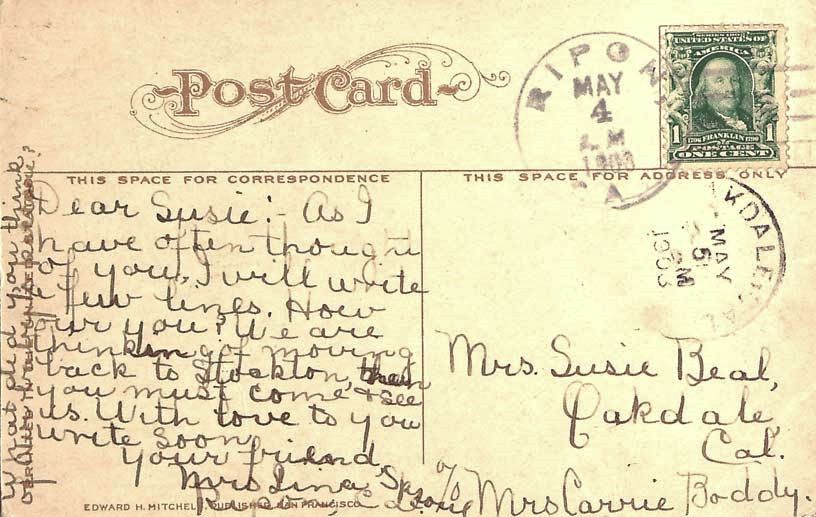 Post Card
RIPON
MAY
4
SERIES 1902
UNITED STATES OF
AMERICA
1 1706 FRANKLIN 1790 1
POSTAGE
ONE CENT
THIS SPACE FOR CORRESPONDENCE
THIS SPACE FOR ADDRESS ONLY
Dear Susie:- As I
have often thought
of you, I will write
a few lines. How
are you? We are
thinking of moving
back to Stockton, then
you must come & see
us. With love to you
write soon
your friend,
Mrs Lina
What did you think
OAKDALE, CAL.
MAY
5
M
Mrs. Susie Beal,
Oakdale
Cal.
c/o Mrs Carrie Boddy.
EDWARD H. MITCHELL, PUBLISHER, SAN FRANCISCO